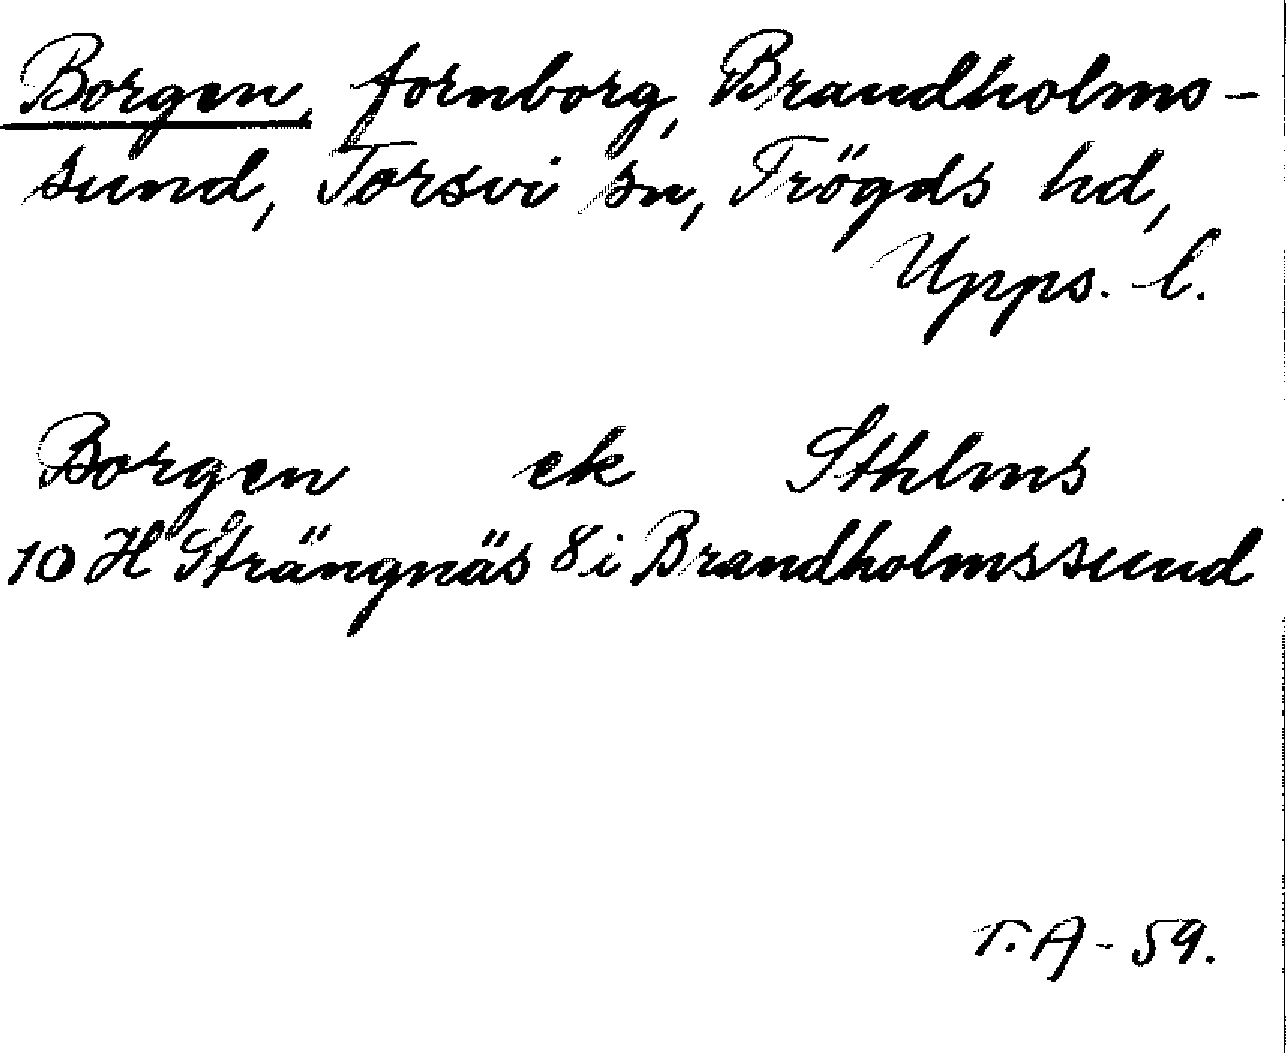 Borgen, fornborg, Brandholms-
sund, Torsvi sn, Trögds hd,
Upps. l.
Borgen ek Sthlms
10 H Strängnäs 8 i Brandholmssund
T. A - 59.